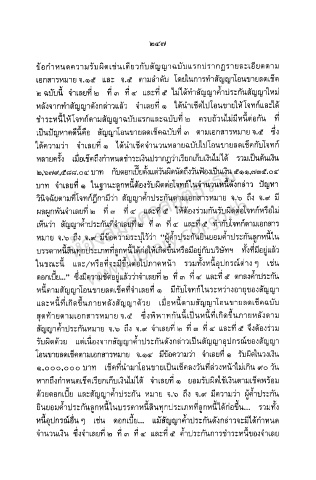 ๒๔๗
ข้อกำหนดความรับผิดเช่นเดียวกับสัญญาฉบับแรกปรากฏรายละเอียดตาม
เอกสารหมาย จ.๑๕ และ จ.๕ ตามลำดับ โดยในการทำสัญญาโอนขายลดเช็ค
๒ ฉบับนี้ จำเลยที่ ๒ ที่ ๓ ที่ ๔ และที่ ๕ ไม่ได้ทำสัญญาค้ำประกันสัญญาใหม่
หลังจากทำสัญญาดังกล่าวแล้ว จำเลยที่ ๑ ได้นำเช็คไปโอนขายให้โจทก์และได้
ชำระหนี้ให้โจทก์ตามสัญญาฉบับแรกและฉบับที่ ๒ ครบถ้วนไม่มีหนี้ต่อกัน ที่
เป็นปัญหาคดีนี้คือ สัญญาโอนขายลดเช็คฉบับที่ ๓ ตามเอกสารหมาย จ.๕ ซึ่ง
ได้ความว่า จำเลยที่ ๑ ได้นำเช็คจำนวนหลายฉบับไปโอนขายลดเช็คกับโจทก์
หลายครั้ง เมื่อเช็คถึงกำหนดชำระเงินปรากฏว่าเรียกเก็บเงินไม่ได้ รวมเป็นต้นเงิน
๒,๖๗๗,๕๘๘.๐๔ บาท กับดอกเบี้ยตั้งแต่วันผิดนัดถึงวันฟ้องเป็นเงิน ๕๑๑,๓๗๕.๐๔
บาท จำเลยที่ ๑ ในฐานะลูกหนี้ต้องรับผิดต่อโจทก์ในจำนวนหนี้ดังกล่าว ปัญหา
วินิจฉัยตามที่โจทก์ฎีกามีว่า สัญญาค้ำประกันตามเอกสารหมาย จ.๖ ถึง จ.๙ มี
ผลผูกพันจำเลยที่ ๒ ที่ ๓ ที่ ๔ และที่ ๕ ให้ต้องร่วมกันรับผิดต่อโจทก์หรือไม่
เห็นว่า สัญญาค้ำประกันที่จำเลยที่ ๒ ที่ ๓ ที่ ๔ และที่ ๕ ทำกับโจทก์ตามเอกสาร
หมาย จ.๖ ถึง จ.๙ มีข้อความระบุไว้ว่า "ผู้ค้ำประกันยินยอมค้ำประกันลูกหนี้ใน
บรรดาหนี้สินทุกประเภทที่ลูกหนี้ได้ก่อให้เกิดขึ้นหรือมีอยู่กับบริษัทฯ ทั้งที่มีอยู่แล้ว
ในขณะนี้ และ/หรือที่จะมีขึ้นต่อไปภาคหน้า รวมทั้งหนี้อุปกรณ์ต่าง ๆ เช่น
ดอกเบี้ย..." ซึ่งมีความชัดอยู่แล้วว่าจำเลยที่ ๒ ที่ ๓ ที่ ๔ และที่ ๕ ตกลงค้ำประกัน
หนี้ตามสัญญาโอนขายลดเช็คที่จำเลยที่ ๑ มีกับโจทก์ในระหว่างอายุของสัญญา
และหนี้ที่เกิดขึ้นภายหลังสัญญาด้วย เมื่อหนี้ตามสัญญาโอนขายลดเช็คฉบับ
สุดท้ายตามเอกสารหมาย จ.๕ ซึ่งพิพาทกันนี้เป็นหนี้ที่เกิดขึ้นภายหลังตาม
สัญญาค้ำประกันหมาย จ.๖ ถึง จ.๙ จำเลยที่ ๒ ที่ ๓ ที่ ๔ และที่ ๕ จึงต้องร่วม
รับผิดด้วย แต่เนื่องจากสัญญาค้ำประกันดังกล่าวเป็นสัญญาอุปกรณ์ของสัญญา
โอนขายลดเช็คตามเอกสารหมาย จ.๑๔ มีข้อความว่า จำเลยที่ ๑ รับผิดในวงเงิน
๑,๐๐๐,๐๐๐ บาท เช็คที่นำมาโอนขายเป็นเช็คลงวันที่ล่วงหน้าไม่เกิน ๙๐ วัน
หากถึงกำหนดเช็คเรียกเก็บเงินไม่ได้ จำเลยที่ ๑ ยอมรับผิดใช้เงินตามเช็คพร้อม
ด้วยดอกเบี้ย และสัญญาค้ำประกัน หมาย จ.๖ ถึง จ.๙ มีความว่า ผู้ค้ำประกัน
ยินยอมค้ำประกันลูกหนี้ในบรรดาหนี้สินทุกประเภทที่ลูกหนี้ได้ก่อขึ้น... รวมทั้ง
หนี้อุปกรณ์อื่น ๆ เช่น ดอกเบี้ย... แม้สัญญาค้ำประกันดังกล่าวจะมิได้กำหนด
จำนวนเงิน ซึ่งจำเลยที่ ๒ ที่ ๓ ที่ ๔ และที่ ๕ ค้ำประกันการชำระหนี้ของจำเลย